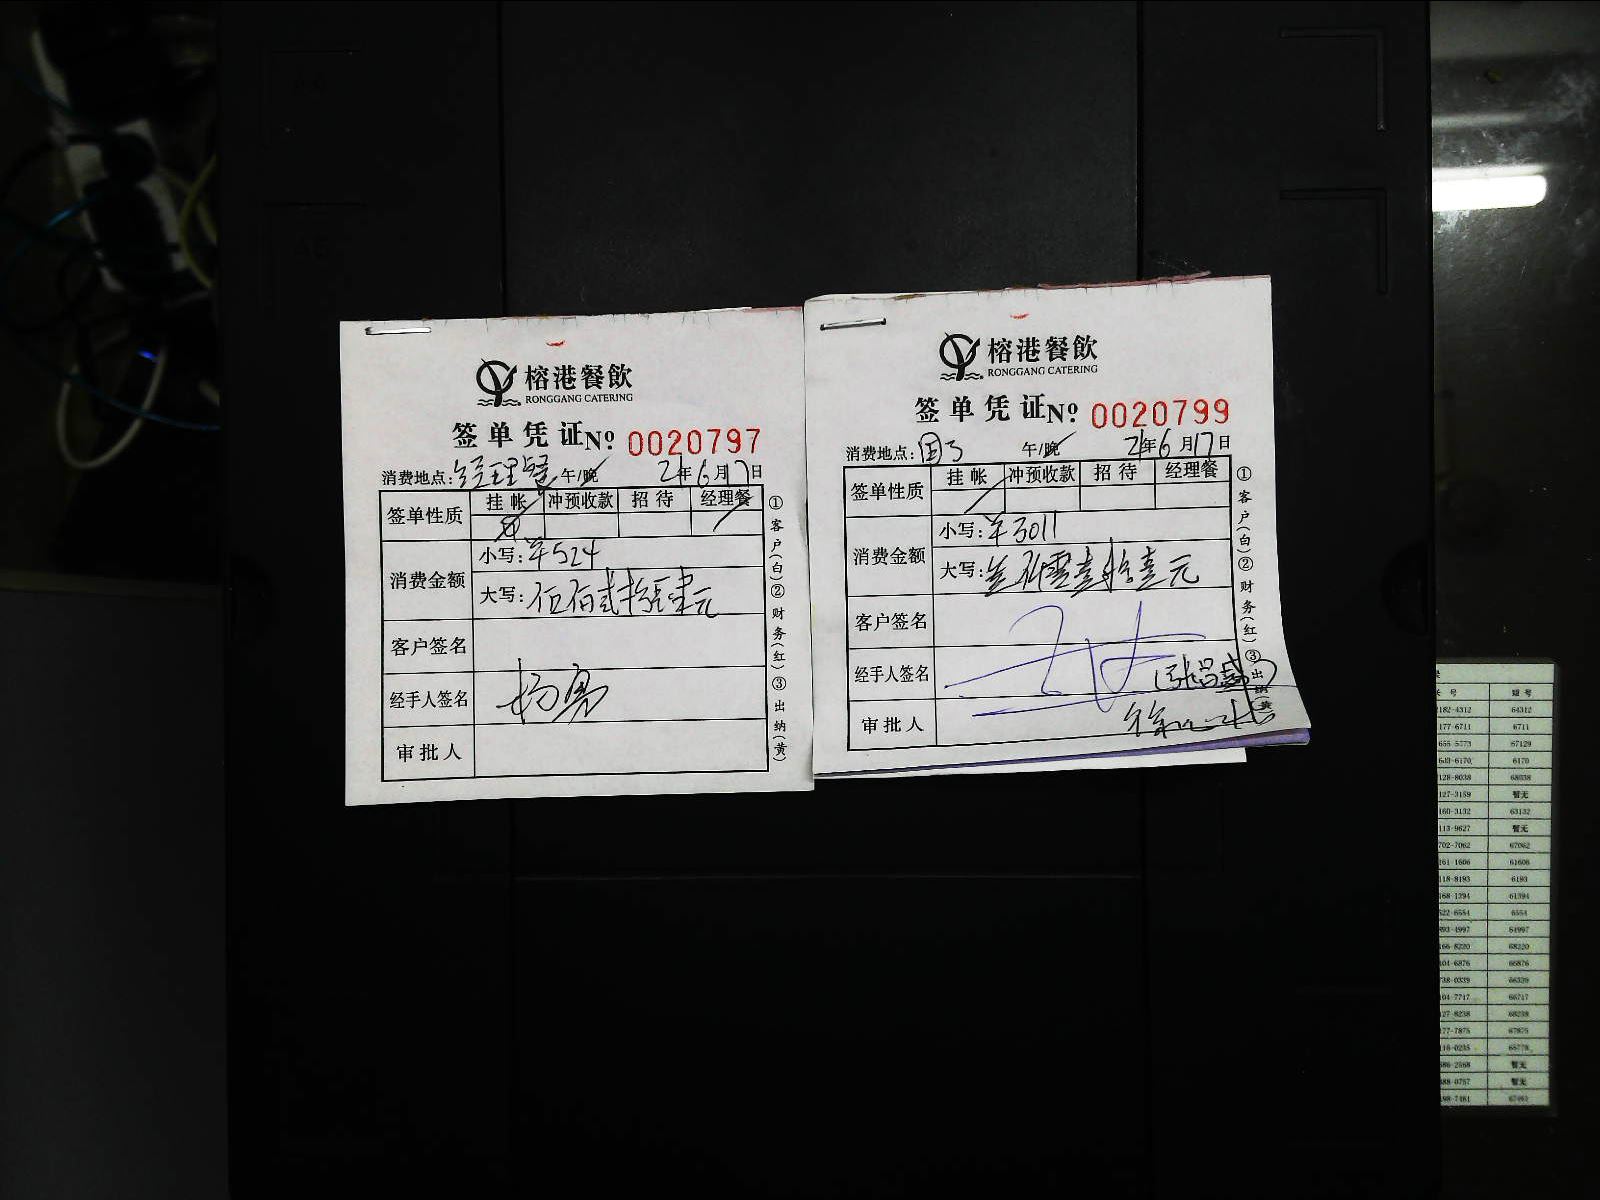 榕港餐飲
RONGGANG CATERING
签单凭证№ 0020797
消费地点: 经理餐 午/晚 21年6月17日
签单性质 挂帐 冲预收款 招待 经理餐
消费金额 小写: ¥524
大写: 伍佰贰拾肆元
客户签名
经手人签名
审批人
①客户(白)②财务(红)③出纳(黄)
榕港餐飲
RONGGANG CATERING
签单凭证№ 0020799
消费地点: 午/晚 21年6月17日
签单性质 挂帐 冲预收款 招待 经理餐
消费金额 小写: ¥3011
大写: 叁仟零壹拾壹元
客户签名
经手人签名 张昌盛
审批人
①客户(白)②财务(红)③出纳(黄)
号 短号
2182-4312 64312
177-6711 6711
655-5773 67129
6170
128-8038 68038
127-3159 暂无
160-3132 63132
113-9627 暂无
702-7062 67062
161-1606 61606
118-8193 6193
168-1394 61394
522-6554 6554
893-4997 64997
166-8220 68220
04-6876 66876
738-0339 66339
04-7717 66717
127-8238 68238
77-7875 67875
暂无
88-0757 暂无